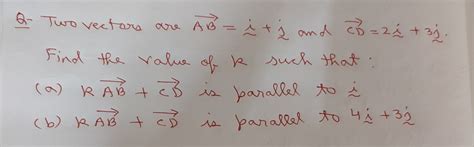 Q- Two vectors are $\overrightarrow{AB} = \underset{\sim}{i} + \underset{\sim}{j}$ and $\overrightarrow{CD} = 2\underset{\sim}{i} + 3\underset{\sim}{j}$.
Find the value of k such that :
(a) k$\overrightarrow{AB}$ + $\overrightarrow{CD}$ is parallel to $\underset{\sim}{i}$
(b) k$\overrightarrow{AB}$ + $\overrightarrow{CD}$ is parallel to $4\underset{\sim}{i} + 3\underset{\sim}{j}$